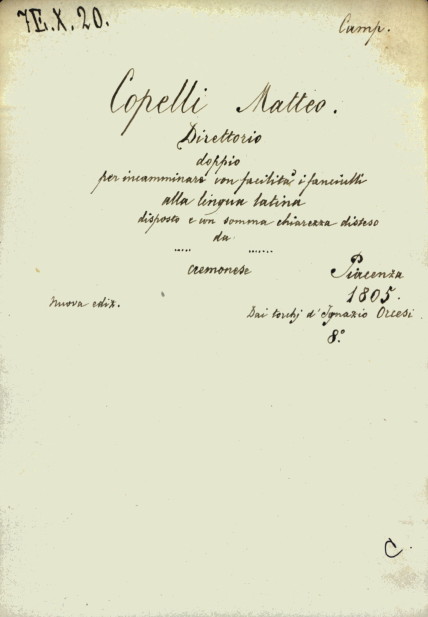 7E.X.20.
Camp.
Copelli Matteo.
Direttorio
doppio
per incamminare con facilità i fanciulli
alla lingua latina
disposto e con somma chiarezza disteso
da
..... .......
cremonese
Piacenza
1805.
Nuova ediz.
Dai torchj d'Ignazio Orcesi
8.°
C.